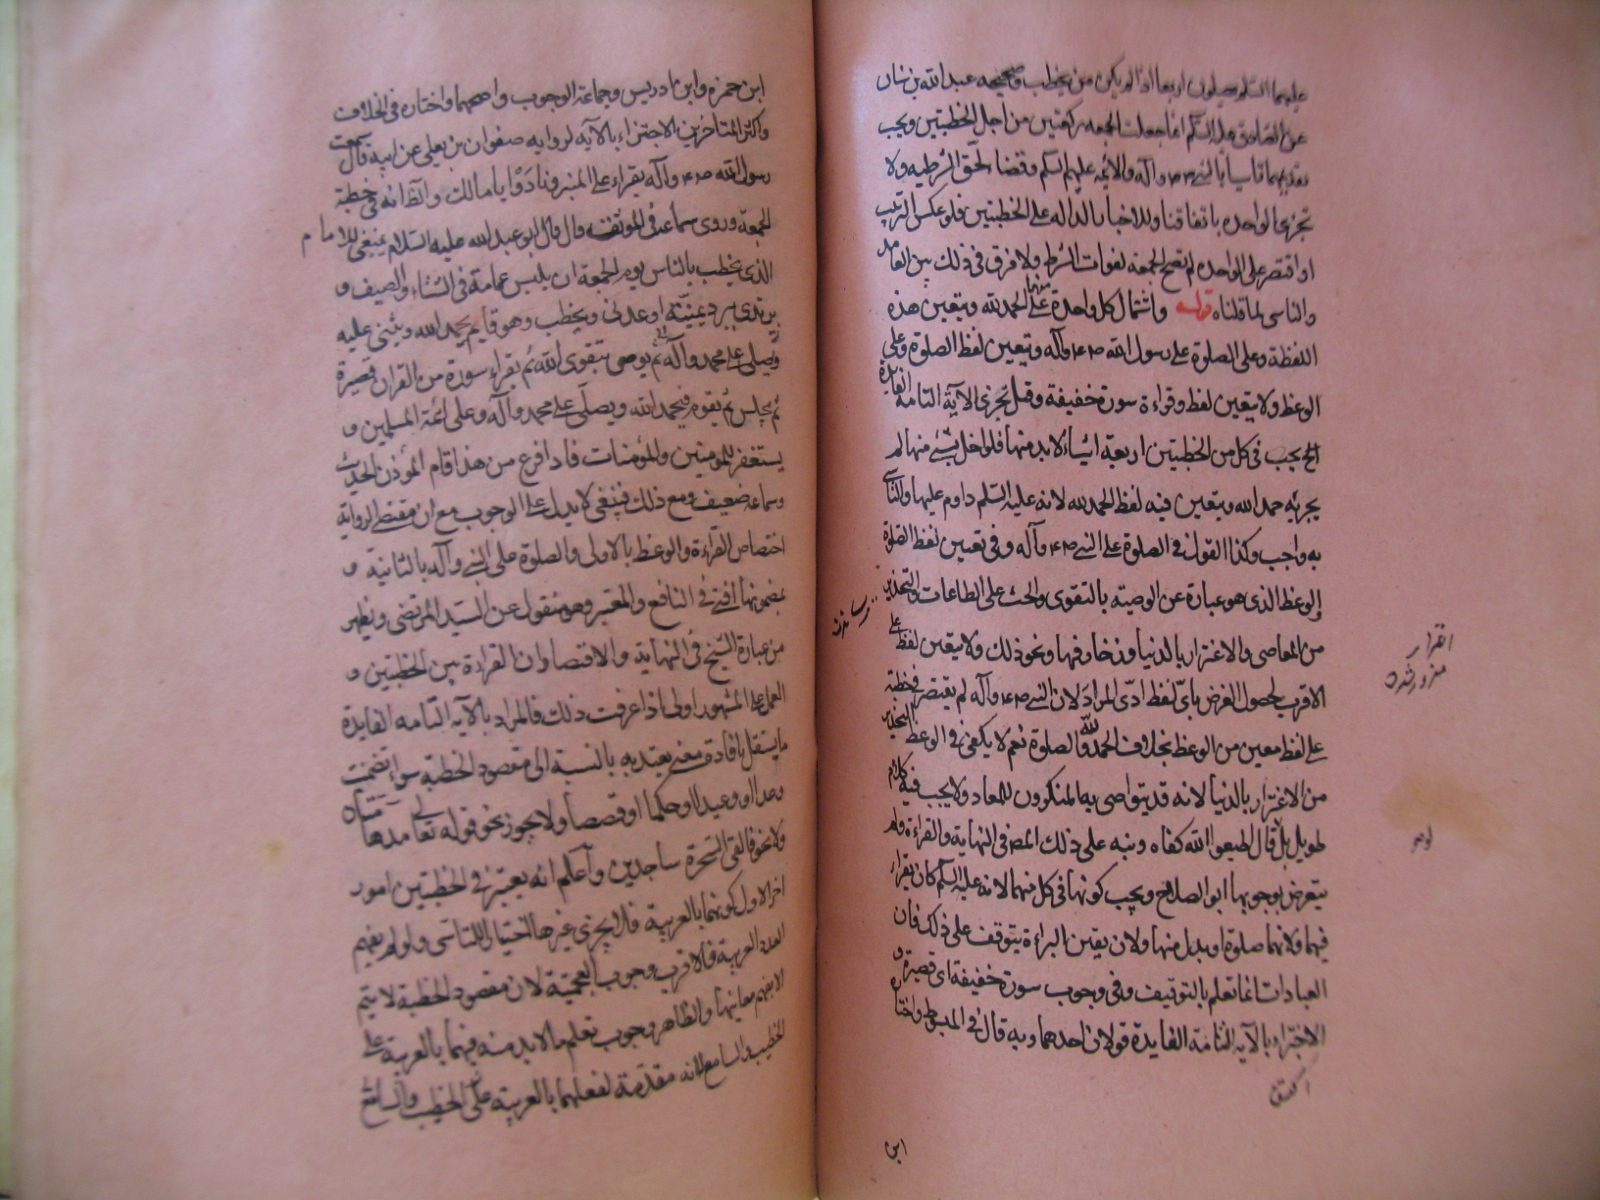 عليهما السلم يصلون اربعا اذا لم يكن من يخطب وصحيحه عبد الله بن سنان
عن الصادق عليه السلم انما جعلت الجمعه ركعتين من اجل الخطبتين ويجب
تقديمهما تاسيا بالنبي وآله والائمه عليهم السلم وقضاء لحق الشرطيه ولا
تجزى الواحده باتفاقنا وللاخبار الداله على الخطبتين فلو عكس الترتيب
او اقتصر على الواحده لم تصح الجمعه لفوات الشرط ولا فرق في ذلك بين العامد
والناسى لما قلناه قوله واشتمال كل واحدة منهما على الحمد لله ويتعين هذه
اللفظة وعلى الصلوة على رسول الله وآله ويتعين لفظ الصلوة وعلى
الوعظ ولا يتعين لفظ وقراءة سورة خفيفة وقيل تجزى الآية التامة الفايدة
الخ يجب في كل من الخطبتين اربعة اشياء لا بد منها فلو اخل بشئ منها لم
يجز به حمد الله ويتعين فيه لفظ الحمد لله لانه عليه السلم داوم عليها والتاسى
به واجب وكذا القول في الصلوة على النبي وآله وفي تعيين لفظ الصلوة
والوعظ الذى هو عبارة عن الوصية بالتقوى والحث على الطاعات والتحذير
من المعاصى والاغترار بالدنيا وزخارفها ونحو ذلك ولا يتعين لفظ على
الاقرب لحصول الغرض باىّ لفظ ادّى المراد لان النبي وآله لم يقتصر في خطبته
على لفظ معين من الوعظ بخلاف الحمد لله والصلوة نعم لا يكفى في الوعظ التحذير
من الاغترار بالدنيا لانه قد يتواصى به المنكرون للمعاد ولا يجب فيه كلام
طويل بل لو قال اطيعوا الله كفاه ونبه على ذلك المص في النهاية والقراءة ولم
يتعرض لوجوبها ابو الصلاح ويجب كونها في كل منهما لانه عليه السلم كان يقرأ
فيهما ولانهما صلوة او بدل منها ولان يقين البراءة يتوقف على ذلك فان
العبادات انما تعلم بالتوقيف وفي وجوب سورة خفيفة اى قصيرة و
الاجتزاء بالآية التامة الفايدة قولان احدهما وبه قال في المبسوط واختاره
ابن
ابن حمزه وابن ادريس وجماعة الوجوب واصحهما واختاره في الخلاف
واكثر المتاخرين الاجتزاء بالآية لرواية صفوان بن يعلى عن ابيه قال سمعت
رسول الله وآله يقراء على المنبر ونادوا يا مالك والظ انه في خطبة
الجمعة وروى سماعة في الموثقه قال قال ابو عبد الله عليه السلام ينبغي للامام
الذى يخطب بالناس يوم الجمعة ان يلبس عمامة في الشتاء والصيف و
يرتدى ببرد يمنيّة او عدنى ويخطب وهو قايم يحمد الله ويثنى عليه
ويصلى على محمد وآله ثم يوصى بتقوى الله ثم يقراء سورة من القران قصيرة
ثم يجلس ثم يقوم فيحمد الله ويصلّى على محمد وآله وعلى ائمة المسلمين و
يستغفر للمومنين والمؤمنات فاذا فرغ من هذا قام المؤذن الحديث
وسماعة ضعيف ومع ذلك فينبغى لا يدل على الوجوب مع ان مقتضى الرواية
اختصاص القراءة والوعظ بالاولى والصلوة على النبي وآله بالثانية و
بمضمونها افتى في النافع والمعتبر وهو منقول عن السيد المرتضى ويظهر
من عبارة الشيخ في النهاية والاقتصاد ان القراءة بين الخطبتين و
العمل على المشهور اولى اذا عرفت ذلك فالمراد بالآية التامه الفايدة
ما يستقل بافادة معنى يعتد به بالنسبة الى مقصود الخطبة سواء تضمنت
وعدا او وعيدا او حكما او قصصا ولا يجوز نحو قوله تعالى مدهامتان
ولا نحو فالقى السحرة ساجدين وآعلم انه يعتبر في الخطبتين امور
اخر الاول كونهما بالعربية فلا يجزى غيرها اختيارا للتاسى ولو لم يفهم
العدد العربية فالاقرب وجوب العجمية لان مقصود الخطبة لا يتم
الا بفهم معانيها والظاهر وجوب تعلم ما لا بد منه فيهما بالعربية على
الخطيب والسامع لانه مقدمة لفعلهما بالعربية على الخطيب والسامع